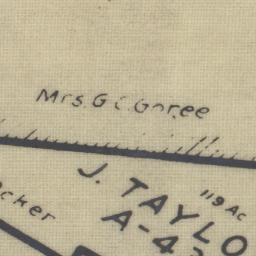 Mrs. G.C. Goree
J. TAYLO
119 Ac
A-4
cker